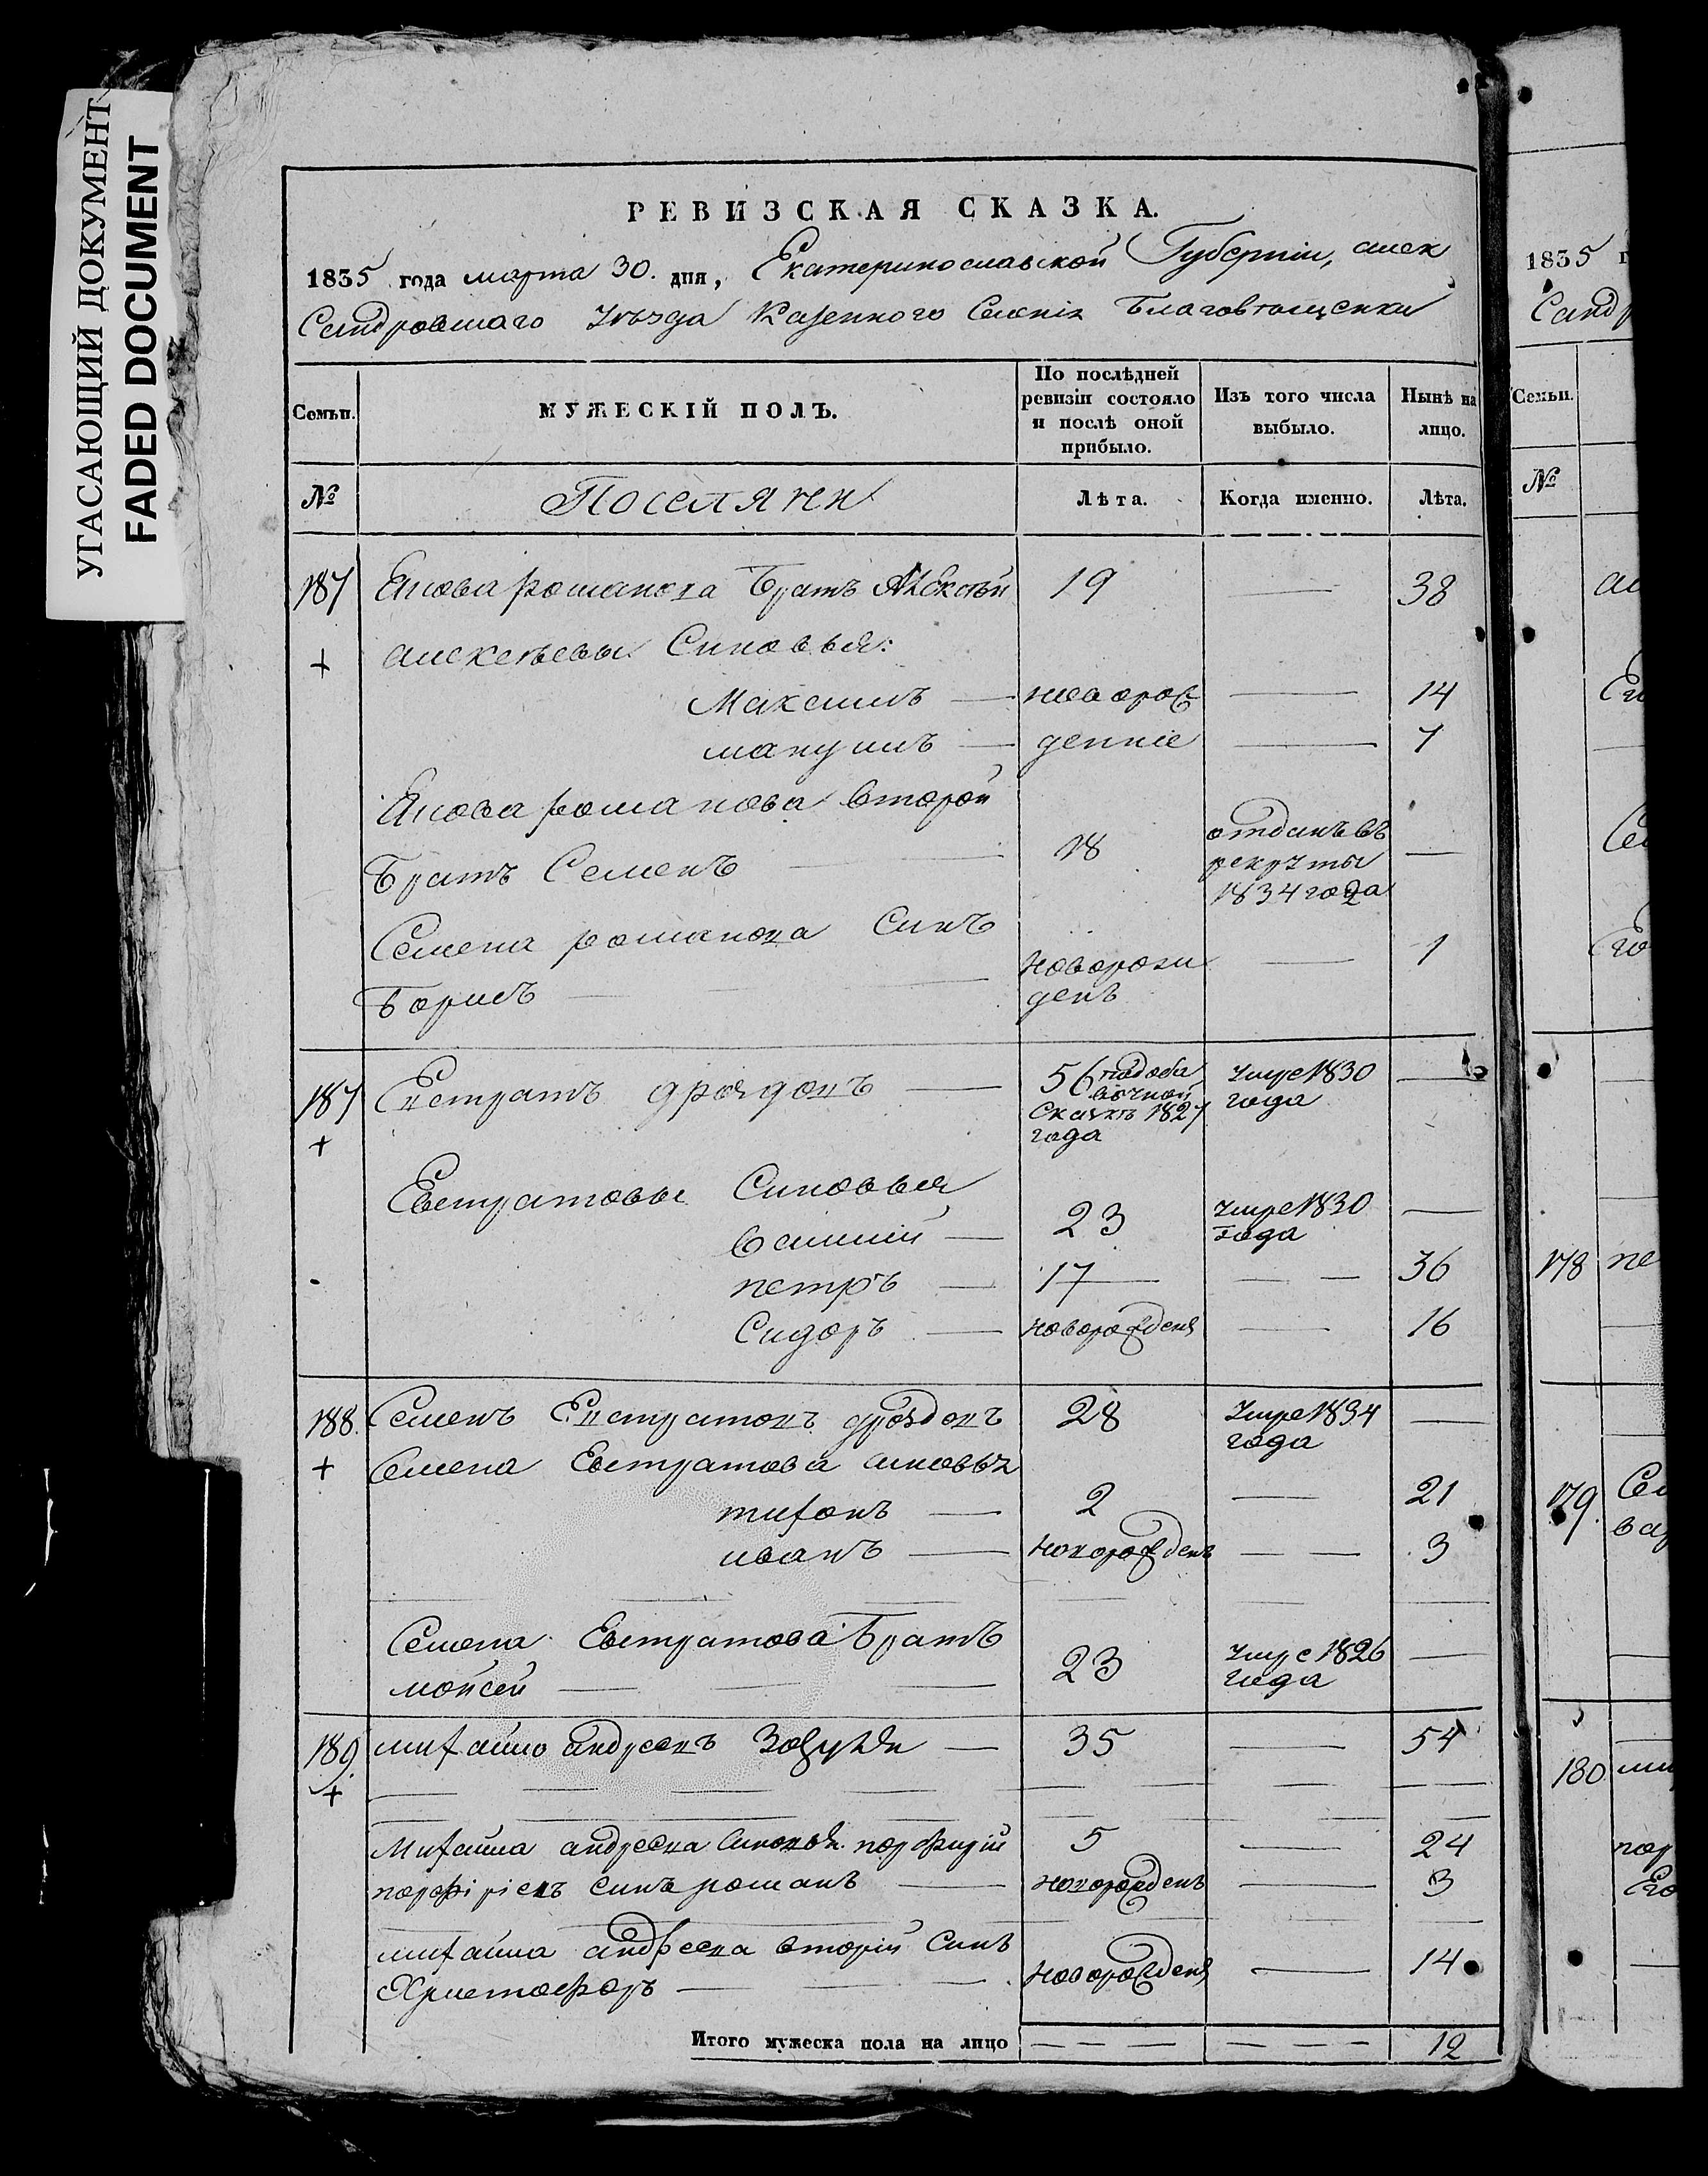 УГАСАЮЩИЙ ДОКУМЕНТ
FADED DOCUMENT
РЕВИЗСКАЯ СКАЗКА.
1835 года марта 30. дня, Екатеринославской Губерніи, алек
сандровскаго Уъзда Казенного Селенія Благовъщенки
Семьи.
МУЖЕСКІЙ ПОЛЪ.
По послѣдней ревизіи состояло и послѣ оной прибыло.
Изъ того числа выбыло.
Нынѣ на лицо.
№
Поселяне
Лѣта.
Когда именно.
Лѣта.
187 Якова романова братъ Алексѣй 19 — 38
+ алексеевы Синовья:
Максимъ — новорож — 14
мануилъ — денніе — 7
Якова романова второй
братъ Семенъ — 18 отданъ въ рекруты 1834 года —
Семена романова Синъ
Борисъ — новорож денъ — 1
187 Евстратъ дроздовъ — 56 подоба вочной Сказкъ 1827 года умре 1830 года —
+
Евстратовы Синовья
василий — 23 умре 1830 года —
петръ — 17 — — 36
Сидоръ — новорожденъ — 16
188. Семенъ Евстратовъ дроздовъ 28 Умре 1834 года —
+ Семена Евстратова синовья
тихонъ — 2 — 21
иванъ — новорожденъ — — 3
Семена Евстратова братъ
мойсей — 23 умре 1826 года —
189. михайло андреевъ — 35 — 54
+
Михайла андреева Синовья порфирій 5 — 24
порфіріевъ синъ романъ — новорожденъ — 3
михайла андреева вторій Синъ
Христофоръ — новорожденъ — 14
Итого мужеска пола на лицо — — — — — — 12
1835 г
Санд
Семьи.
№
178 пе
179. Се
180 ми